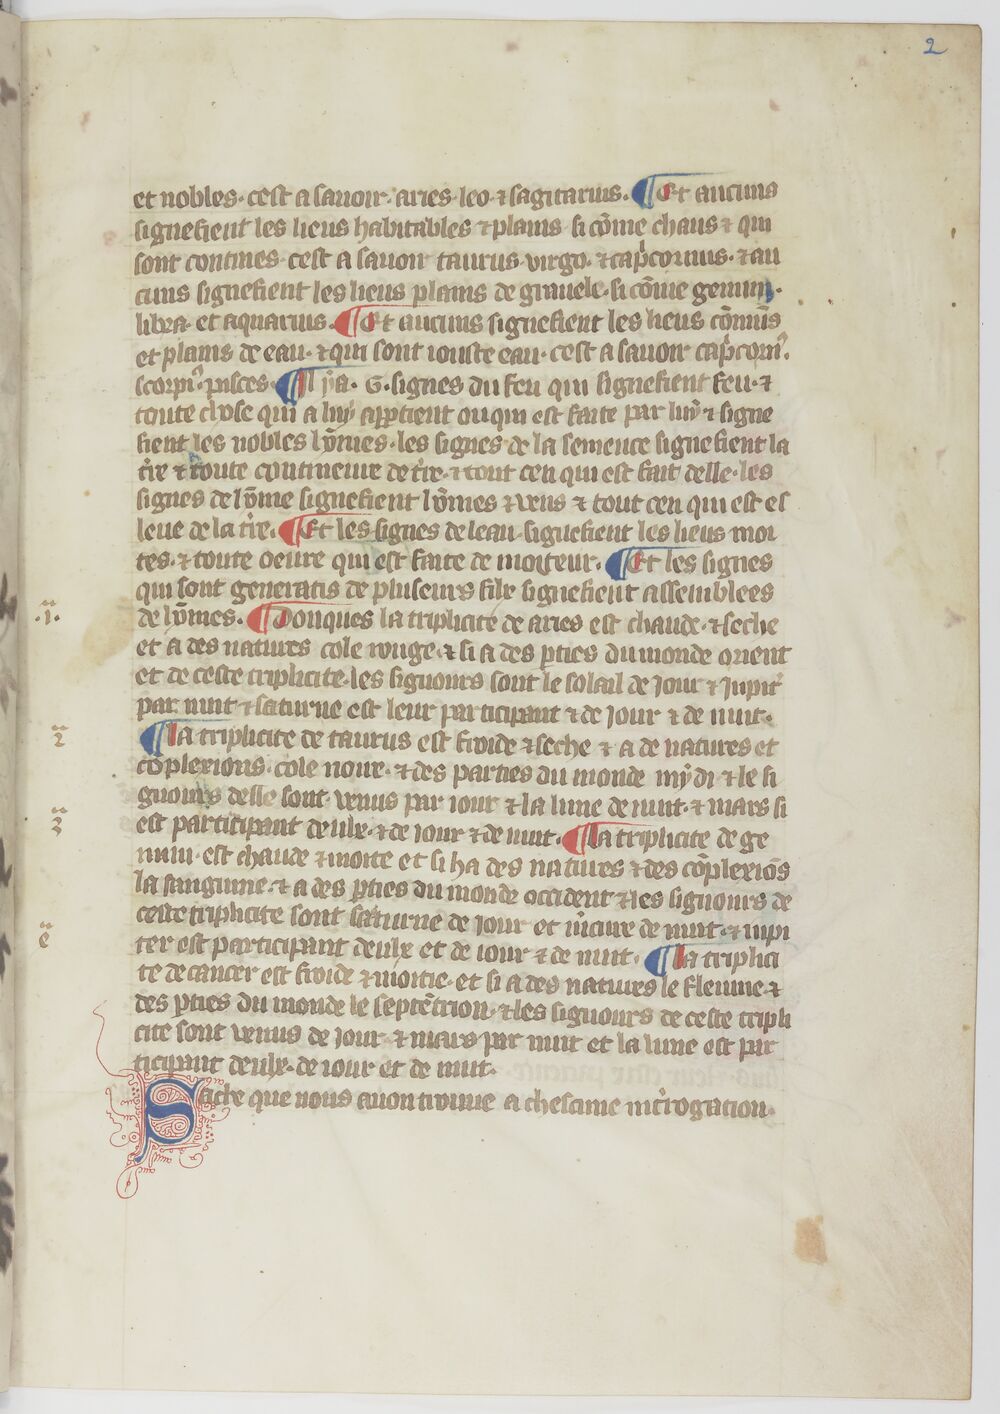 2
et nobles. cest a sauoir. aries. leo. ⁊ sagitarius. ¶ Et aucuns
signefient les lieus habitables ⁊ plains si cōme chaus ⁊ qui
sont contines. cest a sauoir taurus. virgo. ⁊ cap̉cornus. ⁊ au
cuns signefient les lieus plains de grauele. si cōme gemini.
libra. et aquarius. ¶ Et aucuns signefient les lieus cōmūs
et plains de eau. ⁊ qui sont iouste eau. cest a sauoir cap̉corn᾽.
scorpi᾽. pisces. ¶ Il ya. G. signes du feu qui signefient feu. ⁊
toute chose qui a luy ap̲p̲tient ou qui est faite par luy ⁊ signe
fient les nobles hōmes. les signes de la semence signefient la
t̄re ⁊ toute contineure de t̄re. ⁊ tout ceu qui est fait delle. les
signes de hōme signefient hōmes ⁊ vens ⁊ tout ceu qui est es
leue de la t̄re. ¶ Et les signes de leau signefient les lieus moi
tes. ⁊ toute oeure qui est faite de moiteur. ¶ Et les signes
qui sont generatis de pluseurs filz signefient assemblees
.i. de hōmes. ¶ Donques la triplicite de aries est chaude. ⁊ seche
et a des natures cole rouge. ⁊ si a des p̲ties du monde orient
et de ceste triplicite. les signours sont le solail de jour ⁊ Jupit᾽
par nuit ⁊ saturne est leur participant ⁊ de jour ⁊ de nuit.
2 ¶ La triplicite de taurus est froide ⁊ seche ⁊ a de natures et
cōplexions. cole noire. ⁊ des parties du monde mydi ⁊ le si
gnours delle sont. venus par iour ⁊ la lune de nuit. ⁊ mars si
3 est participant deulx. ⁊ de iour ⁊ de nuit. ¶ La triplicite de ge
mini. est chaude ⁊ moite et si ha des natures ⁊ des cōplexiōs
la sanguine. ⁊ a des p̲ties du monde occident ⁊ les signours de
ceste triplicite sont saturne de jour et m̄cure de nuit. ⁊ iupi
ter est participant deulx et de iour ⁊ de nuit. ¶ La triplici
te de cancer est froide ⁊ moitie. et si a des natures le fleume. ⁊
des p̲ties du monde le septētrion. ⁊ les signours de ceste tripli
cite sont venus de jour ⁊ mars par nuit et la lune est par
ticipant deulx. de iour et de nuit.
Sache que nous auon trouue a chescune int̉rogation.